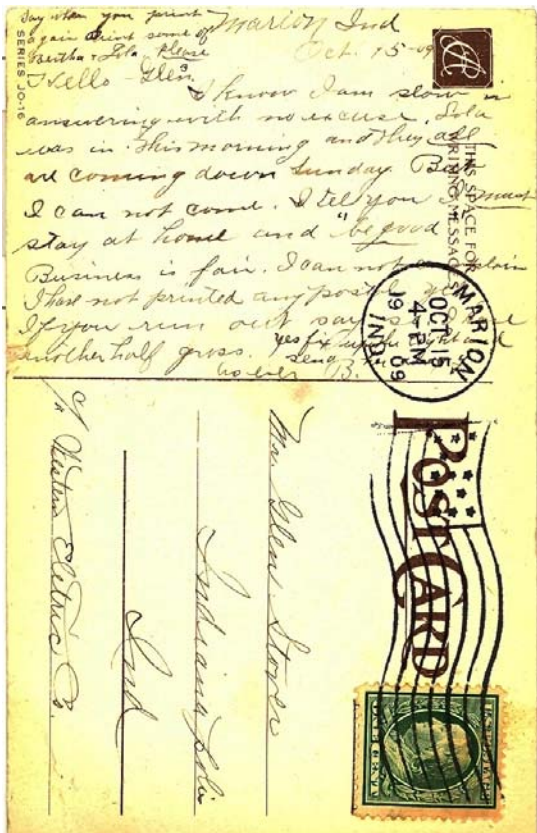 Say when you print
again print some of
Bertha & Lola Please
Marion Ind
Oct. 15-09
Hello Glen.
I know I am slow in
answering with no excuse. Lola
was in this morning and they all
are coming down Sunday. But
I can not come. I tell you I must
stay at home and "be good"
Business is fair. I can not complain
I have not printed any postals yet
If you run out say so
another half gross. yes fix up the light and
send
as ever B.
SERIES JO-16
THIS SPACE FOR
WRITING MESSAGES
MARION
OCT 15
4-PM
19 09
IND.
POST CARD
Mr. Glen Stover
Indianapolis
Ind
c/o Western Eletric Co.